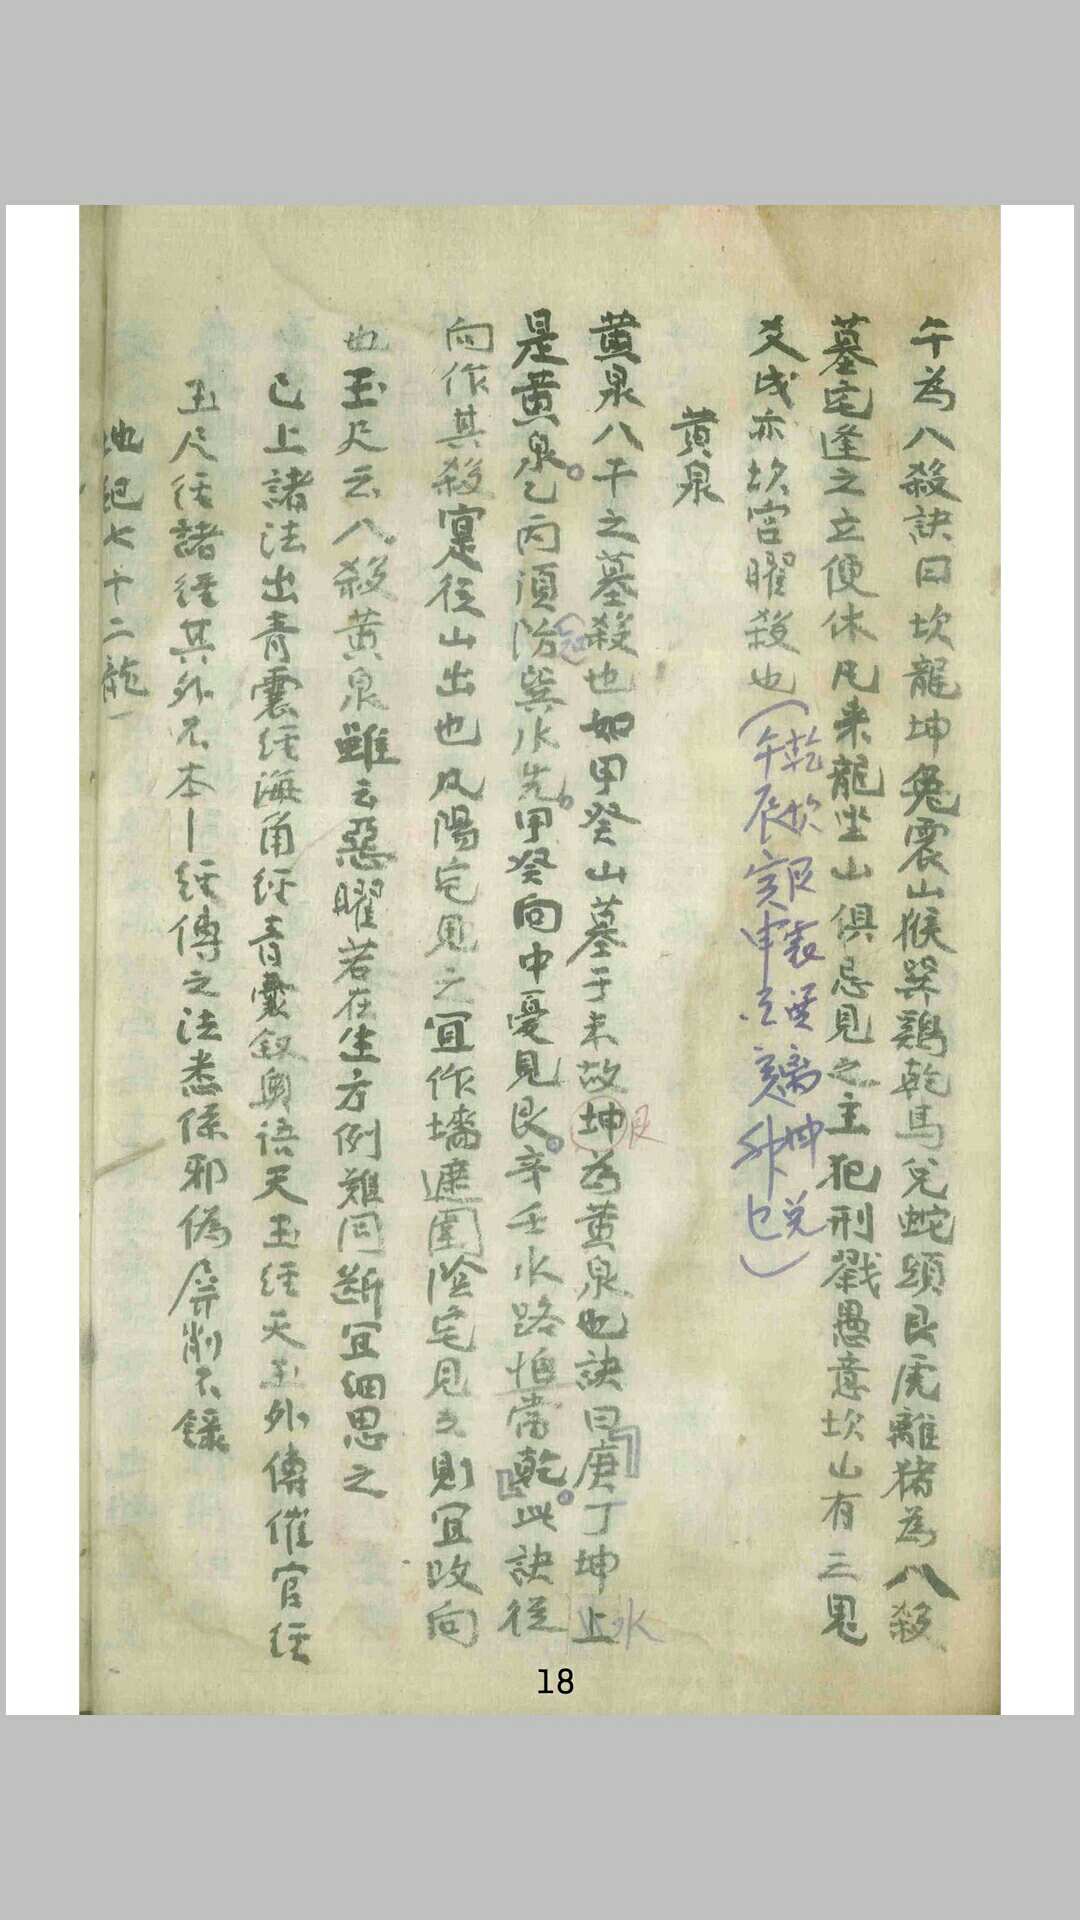 午為八殺訣曰坎龍坤兔震山猴巽鷄乾馬兌蛇頭艮虎離猪為八殺
墓宅逢之立便休凡来龍坐山俱忌見之主犯刑戮愚意坎山有三鬼
爻戌亦坎宮曜殺也
黄泉
黄泉八干之墓殺也如甲癸山墓于未故坤為黄泉也訣曰庚丁坤上
艮
水
是黄泉乙丙須防巽水先甲癸向中憂見艮辛壬水路怕當乾此訣從
向作其殺寔從山出也凡陽宅見之宜作墻遮圍陰宅見之則宜改向
也玉尺云八殺黄泉雖云惡曜若在生方例難同断宜細思之
已上諸法出青囊経海角経青囊叙奥语天玉経天玉外傳催官経
玉尺経諸経其外不本経傳之法悉係邪偽屏削不錄
地紀七十二龍
18